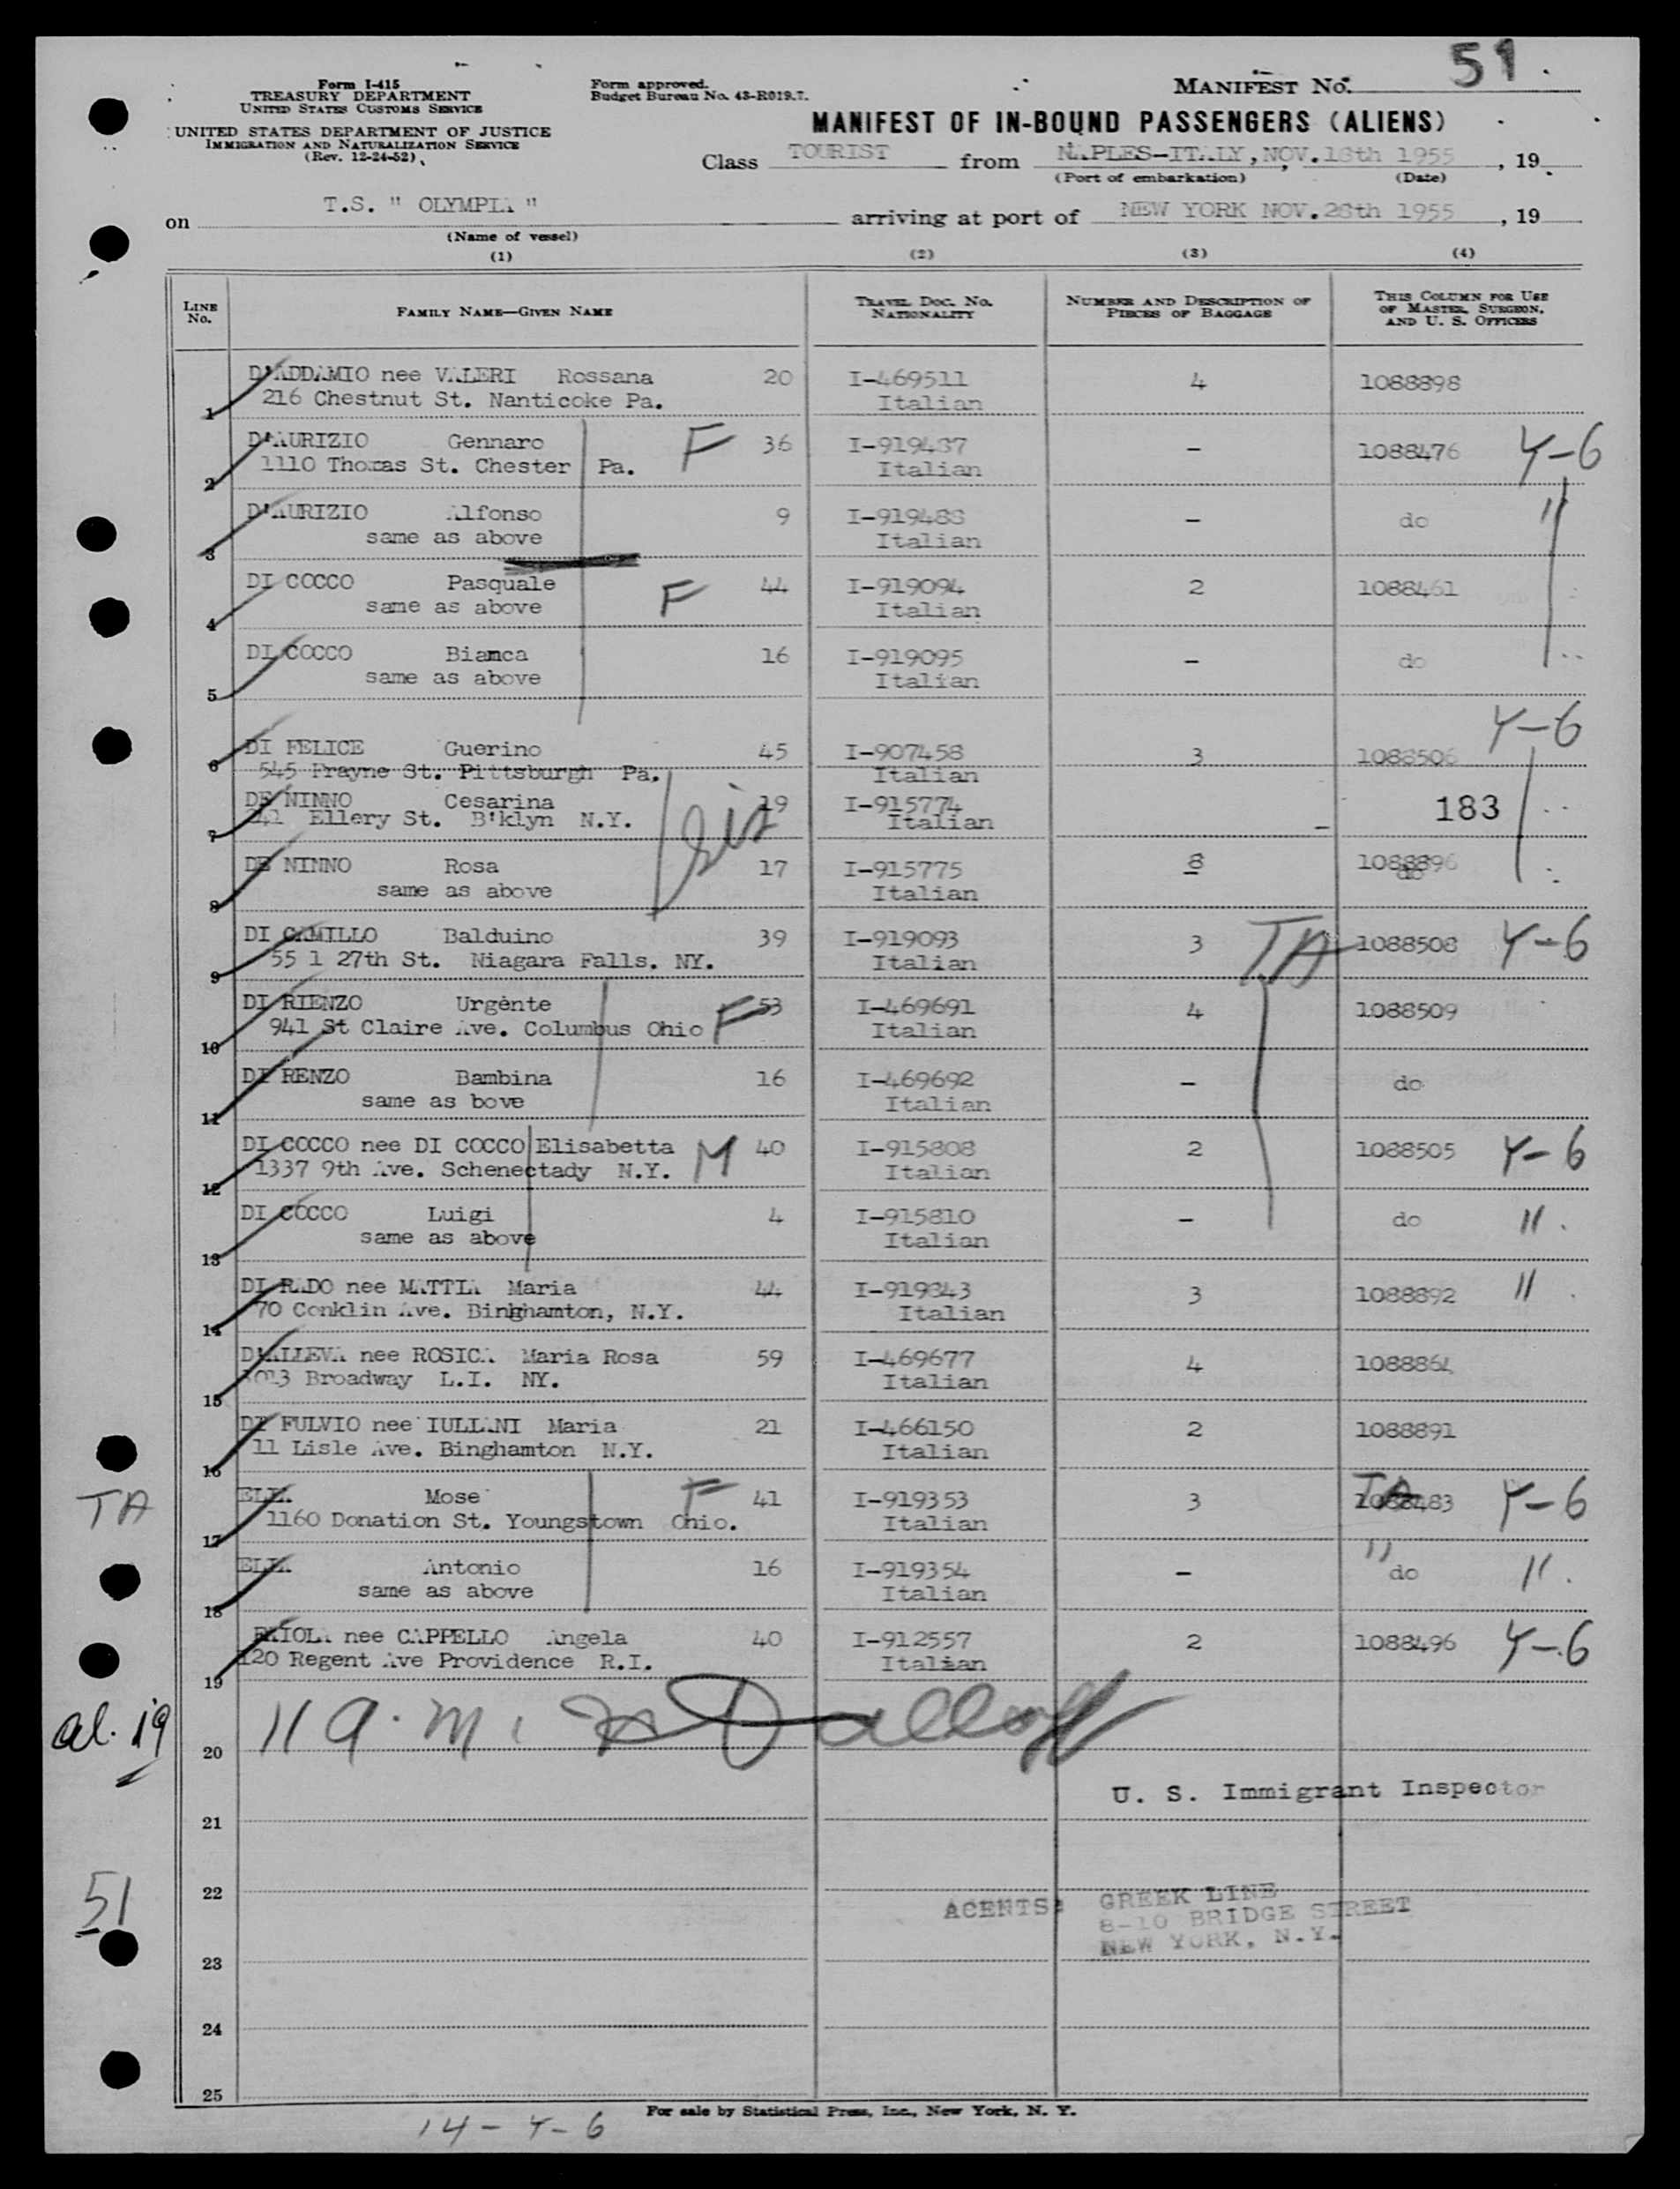 51
Form I-415
TREASURY DEPARTMENT
UNITED STATES CUSTOMS SERVICE
UNITED STATES DEPARTMENT OF JUSTICE
IMMIGRATION AND NATURALIZATION SERVICE
(Rev. 12-24-52)
Form approved.
Budget Bureau No. 43-R019.7.
MANIFEST NO.
MANIFEST OF IN-BOUND PASSENGERS (ALIENS)
Class TOURIST from NAPLES-ITALY, NOV. 1955, 19
(Port of embarkation) (Date)
on T.S. " OLYMPIA " arriving at port of NEW YORK NOV. 1955, 19
(Name of vessel)
(1) (2) (3) (4)
LINE No. FAMILY NAME—GIVEN NAME TRAVEL DOC. NO. NATIONALITY NUMBER AND DESCRIPTION OF PIECES OF BAGGAGE THIS COLUMN FOR USE OF MASTER, SURGEON, AND U. S. OFFICERS
D'ADDAMIO nee VALERI Rossana 20 I-469511 4 1088898
1 216 Chestnut St. Nanticoke Pa. Italian
D'AURIZIO Gennaro F 36 I-919487 - 1088476 Y-6
2 1110 Thomas St. Chester Pa. Italian
D'AURIZIO Alfonso 9 I-919488 - do "
3 same as above Italian
DI COCCO Pasquale F 44 I-919094 2 1088461
4 same as above Italian
DI COCCO Bianca 16 I-919095 - do
5 same as above Italian
Y-6
DI FELICE Guerino 45 I-907458 3 1088506
6 545 Prayne St. Pittsburgh Pa. Italian
DE NINNO Cesarina 19 I-915774 - 183
7 241 Ellery St. B'klyn N.Y. Italian
sis
DE NINNO Rosa 17 I-915775 8 1088896
8 same as above Italian do
DI CAMILLO Balduino 39 I-919093 3 TA 1088508 Y-6
9 55 1 27th St. Niagara Falls. NY. Italian
DI RIENZO Urgènte F 53 I-469691 4 1088509
10 941 St Claire Ave. Columbus Ohio Italian
DI RENZO Bambina 16 I-469692 - do
11 same as bove Italian
DI COCCO nee DI COCCO Elisabetta M 40 I-915808 2 1088505 Y-6
12 1337 9th Ave. Schenectady N.Y. Italian
DI COCCO Luigi 4 I-915810 - do "
13 same as above Italian
DI RADO nee MATTIA Maria 44 I-919343 3 1088892 "
14 70 Conklin Ave. Binghamton, N.Y. Italian
D'ALLEVA nee ROSICA Maria Rosa 59 I-469677 4 1088864
15 Broadway L.I. NY. Italian
DI FULVIO nee IULIANI Maria 21 I-466150 2 1088891
16 11 Lisle Ave. Binghamton N.Y. Italian
ELIA Mose F 41 I-919353 3 TA 1088483 Y-6
17 1160 Donation St. Youngstown Ohio. Italian
TA
ELIA Antonio 16 I-919354 - " do "
18 same as above Italian
PAIOLA nee CAPPELLO Angela 40 I-912557 2 1088496 Y-6
19 120 Regent Ave Providence R.I. Italian
al. 19
11 a.m.
20
U. S. Immigrant Inspector
21
51
22
AGENTS: GREEK LINE
8-10 BRIDGE STREET
NEW YORK, N.Y.
23
24
25
For sale by Statistical Press, Inc., New York, N. Y.
14-Y-6